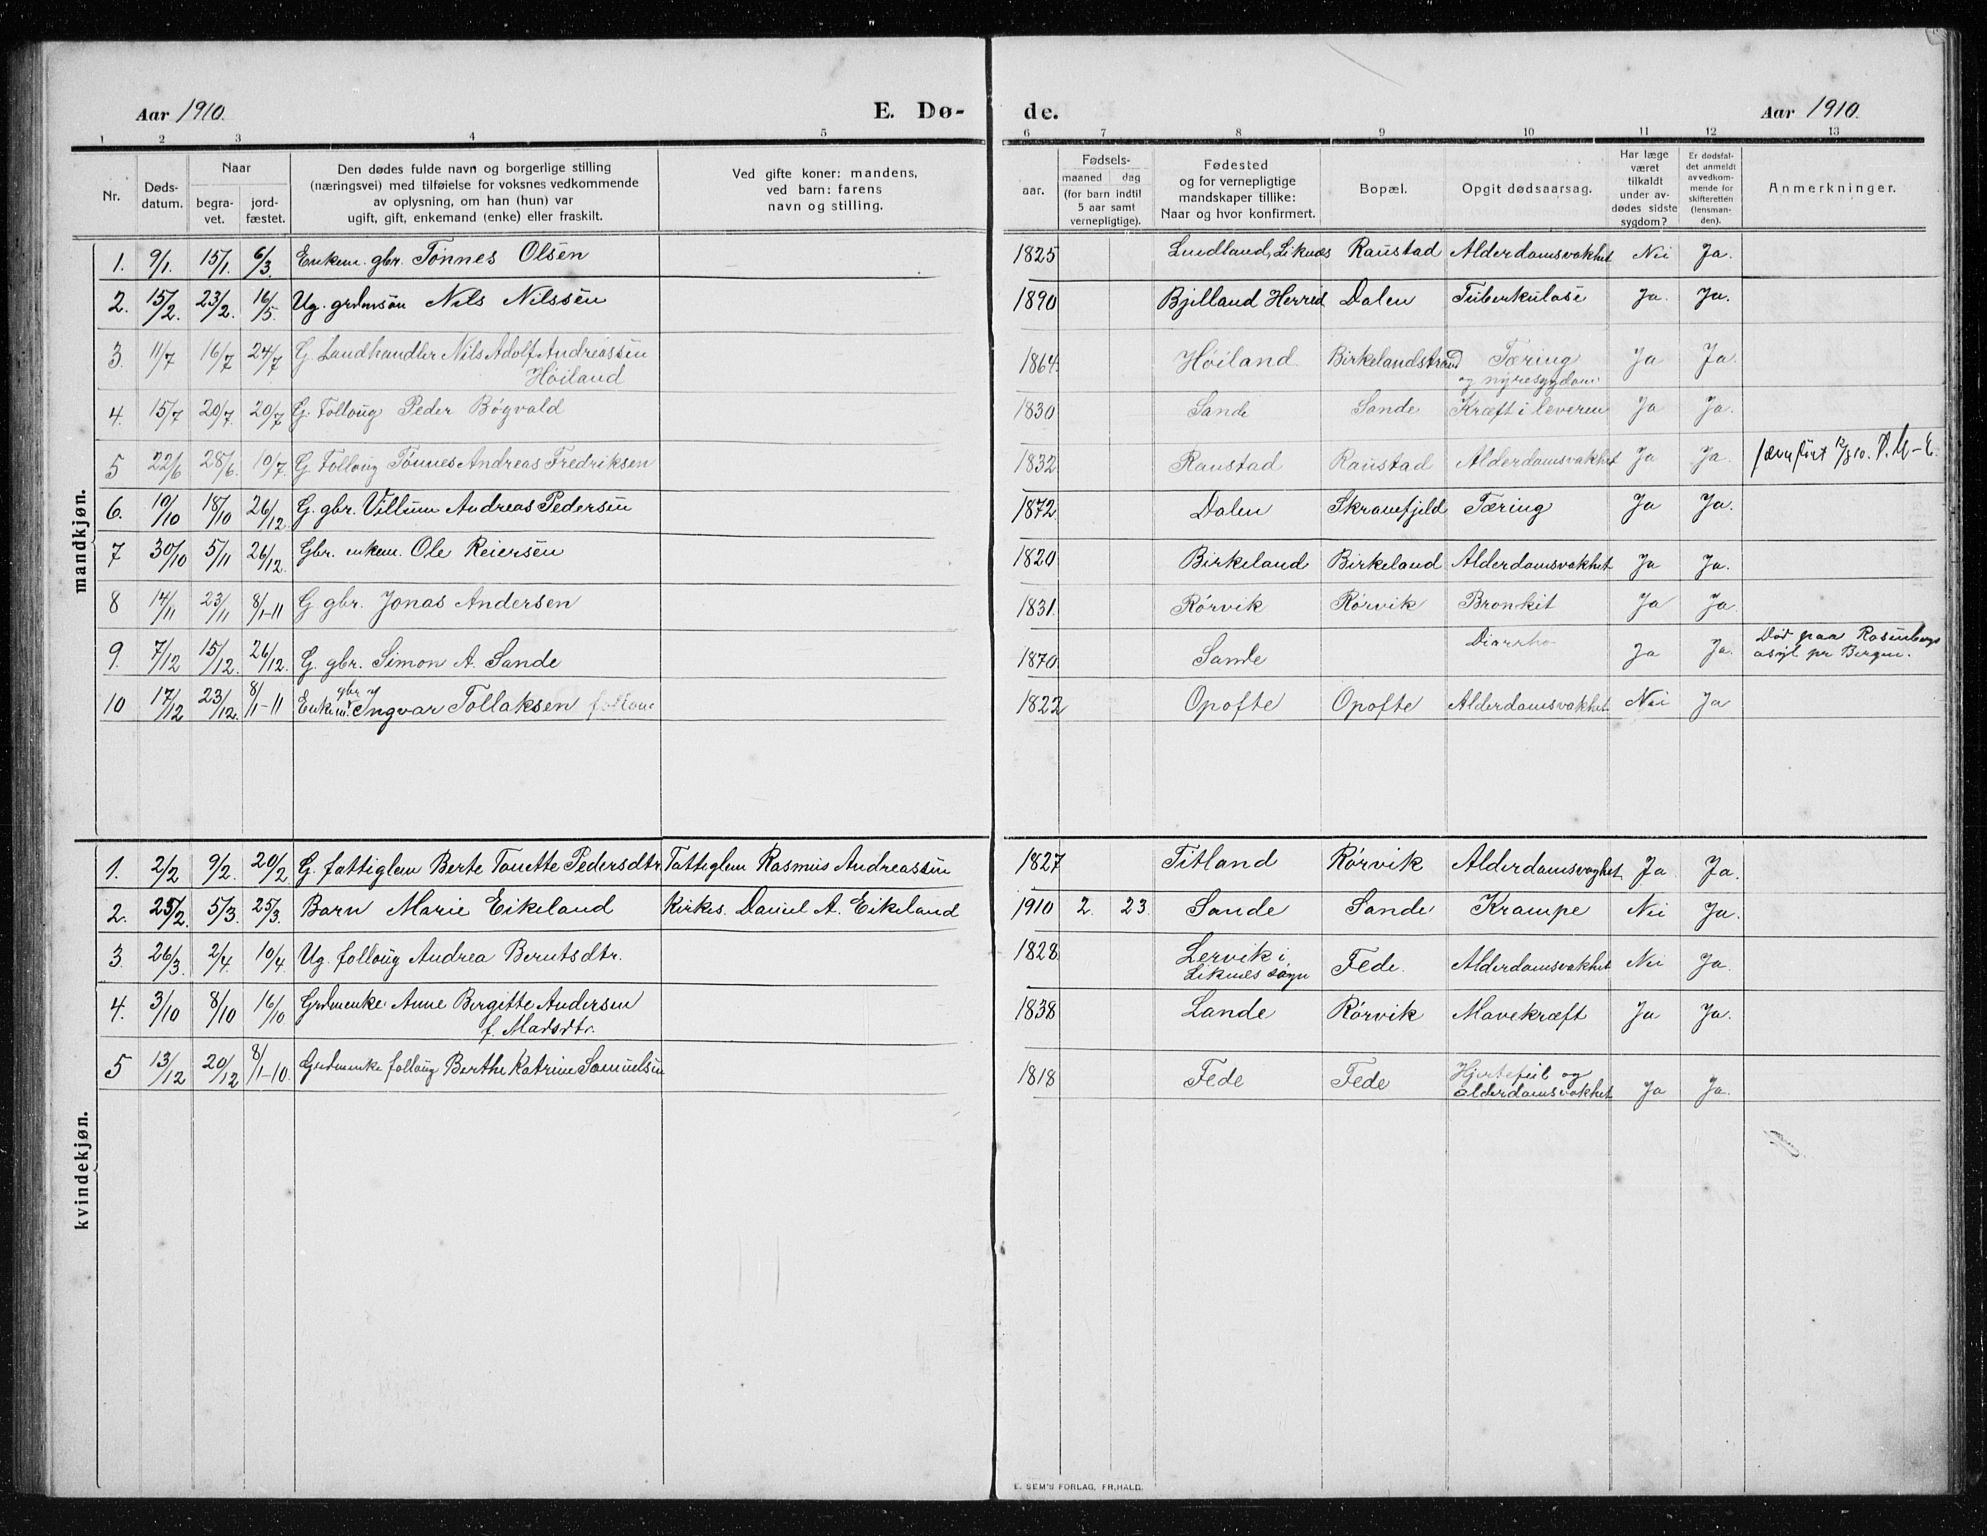 Aar 1910. E. Dø- de. Aar 1910.
1 2 3 4 5 6 7 8 9 10 11 12 13
Nr. Døds-datum. Naar begra-vet. jord-fæstet. Den dødes fulde navn og borgerlige stilling (næringsvei) med tilføielse for voksnes vedkommende av oplysning, om han (hun) var ugift, gift, enkemand (enke) eller fraskilt. Ved gifte koner: mandens, ved barn: farens navn og stilling. aar. Fødsels- maaned dag (for barn indtil 5 aar samt vernepligtige). Fødested og for vernepligtige mandskaper tillike: Naar og hvor konfirmert. Bopæl. Opgit dødsaarsag. Har læge været tilkaldt under av-dødes sidste sygdom? Er dødsfal-det anmeldt av vedkom-mende for skifteretten (lensman-den). Anmerkninger.
mandkjøn.
1. 9/1. 15/1. 6/3. Enkem. gbr. Tønnes Olsen 1825 Lindland, Liknes Raustad Alderdomsvakhet Nei Ja.
2. 15/2. 23/2. 16/5. Ug. grdmsøn Nils Nilssen 1890 Bjelland Herred Dalen Tuberkulose Ja. Ja.
3 11/7 16/7 24/7 G. Landhandler Nils Adolf Andreassen Høiland 1864 Høiland Birkelandstrand Tæring og nyresygdom Ja Ja
4. 15/7 20/7. 20/7 G. Follaug Peder Bøgvald 1830 Sande Sande Kræft i leveren Ja Ja.
5 22/6 28/6. 10/7. G. Follaug Tønnes Andreas Fredriksen 1832 Raustad Raustad Alderdomsvakhet Ja Ja.
6. 10/10 18/10 26/12. G. gbr. Villum Andreas Pedersen 1872 Dalen Skranefjeld Tæring Ja Ja.
7 30/10 5/11 26/12. Gbr. enkem. Ole Reiersen 1820 Birkeland Birkeland Alderdomsvakhet Ja Ja.
8 14/11 23/11 8/1-11 G gbr. Jonas Andersen 1831. Rørvik Rørvik Bronkit Ja Ja.
9. 7/12 15/12. 26/12. G. gbr. Simon A. Sande 1870 Sande Diarrho Ja Ja. Død paa Rosenbergs asyl pr Bergen.
10 17/12 23/12. 8/1-11 Enkem. gbr Ingvar Tollaksen 1822 Opofte Opofte Alderdomsvakhet Nei Ja
kvindekjøn.
1. 2/2 9/2. 20/2. G. fattiglem Berte Tonette Pedersdtr. Fattiglem Rasmus Andreassen 1827 Titland Rørvik Alderdomsvaghet Ja Ja.
2. 25/2. 5/3. 25/3. Barn Marie Eikeland Kirkes. Daniel A. Eikeland 1910 2. 23. Sande Sande Krampe Nei Ja.
3. 26/3. 2/4. 10/4. Ug. follaug Andrea Berntsdtr. 1828 Lervik i Liknes sogn Fede. Alderdomsvakhet Nei Ja.
4. 3/10 8/10 16/10 Grdmenke Anne Bergitte Andersen f. Madsdtr. 1838 Lande Rørvik Mavekræft Ja Ja.
5 13/12 20/12 8/1-10. Grdmenke follaug Berthe Katrine Samuelsen 1818 Fede Fede Hjertefeil og alderdomsvakhet Ja Ja.
E. SEM'S FORLAG, FR.HALD.